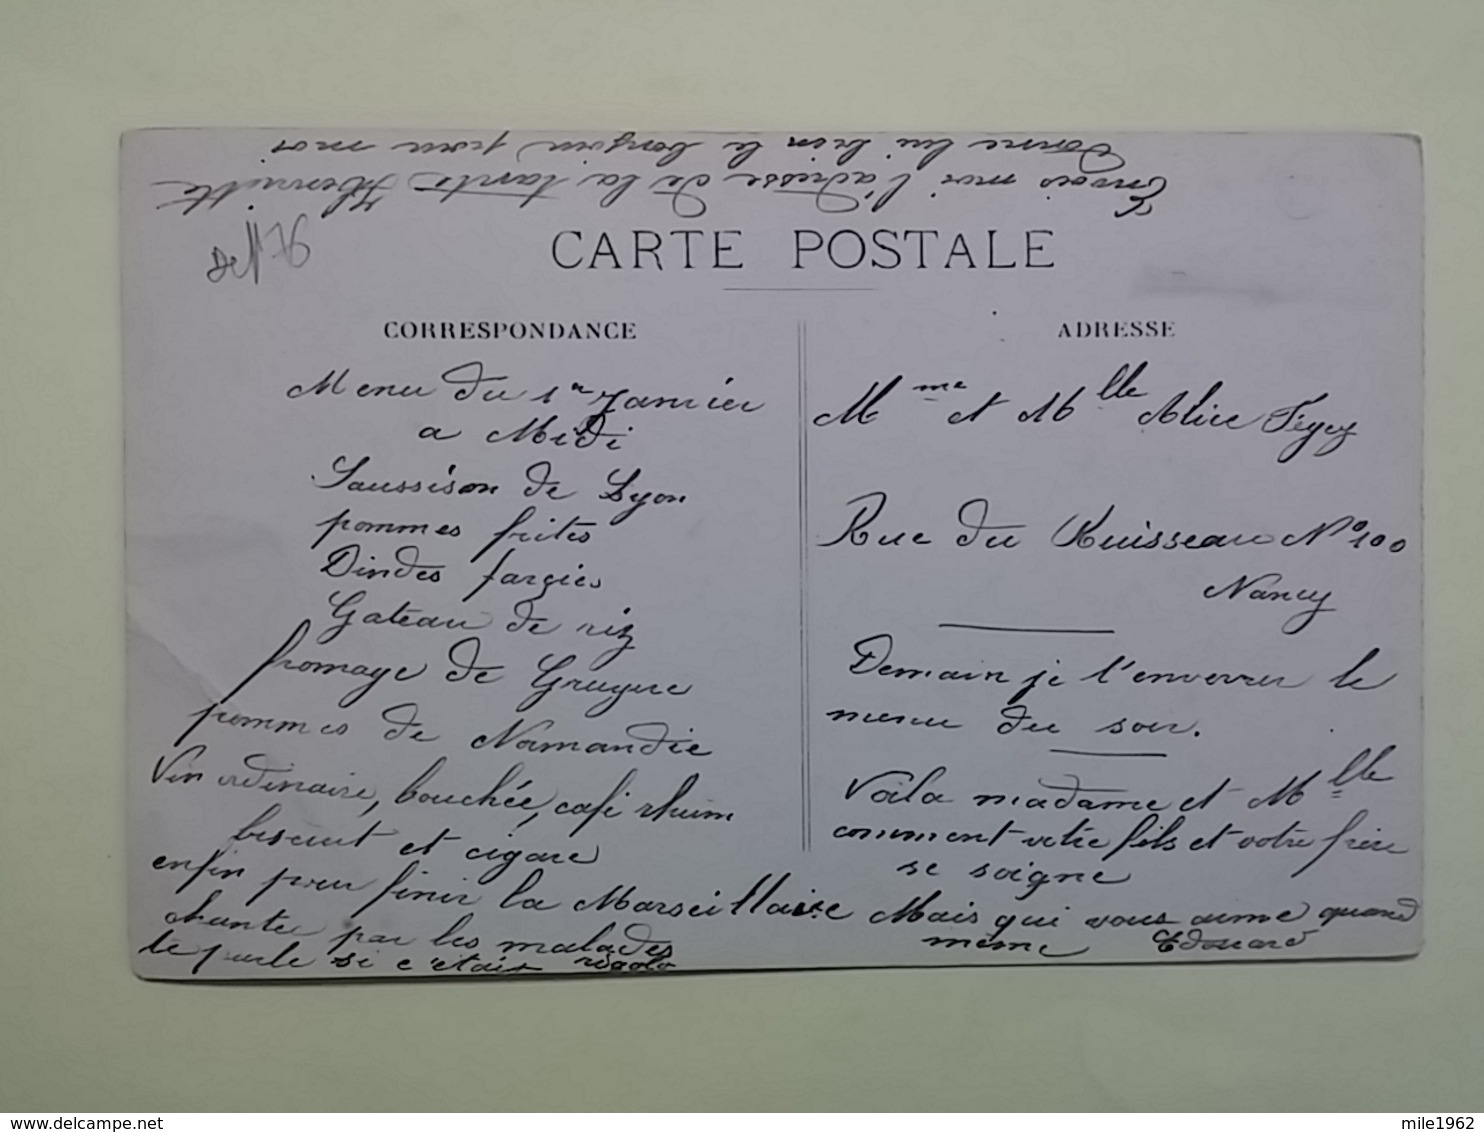 Envois moi l'adresse de la tante Henriette
Donne lui bien le bonjour pour moi
Dep 76
CARTE POSTALE
CORRESPONDANCE
Menu du 1er Janvier
a Midi
Saussison de Lyon
pommes frites
Dindes fargies
Gateau de riz
fromage de Gruyere
pommes de Normandie
Vin ordinaire, bouchée, café rhum
biscuit et cigare
enfin pour finir la Marseillaise
chantée par les malades
te parle si c'etait rigolo
ADRESSE
Mme et Mlle Alice
Rue du Ruisseau No 100
Nancy
Demain je t'enverrer le
menu du soir.
Voila madame et Mlle
comment votre fils et votre frère
se soigne
Mais qui vous aime quand
même Edouard
delcampe.net
mile1962